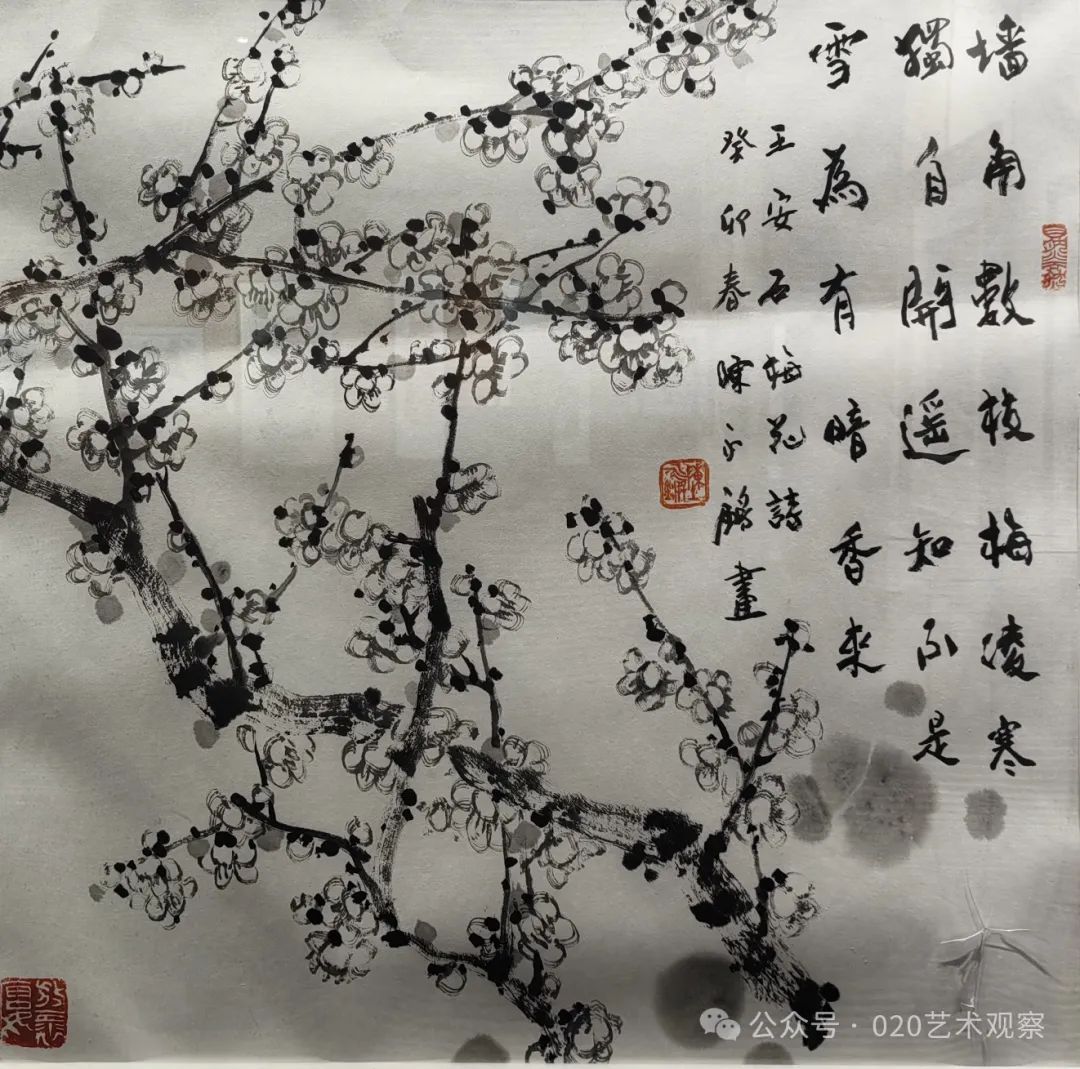 墙角數枝梅凌寒
獨自開遥知不是
雪為有暗香来
王安石梅花詩
癸卯春陳畫
公众号 · 020艺术观察